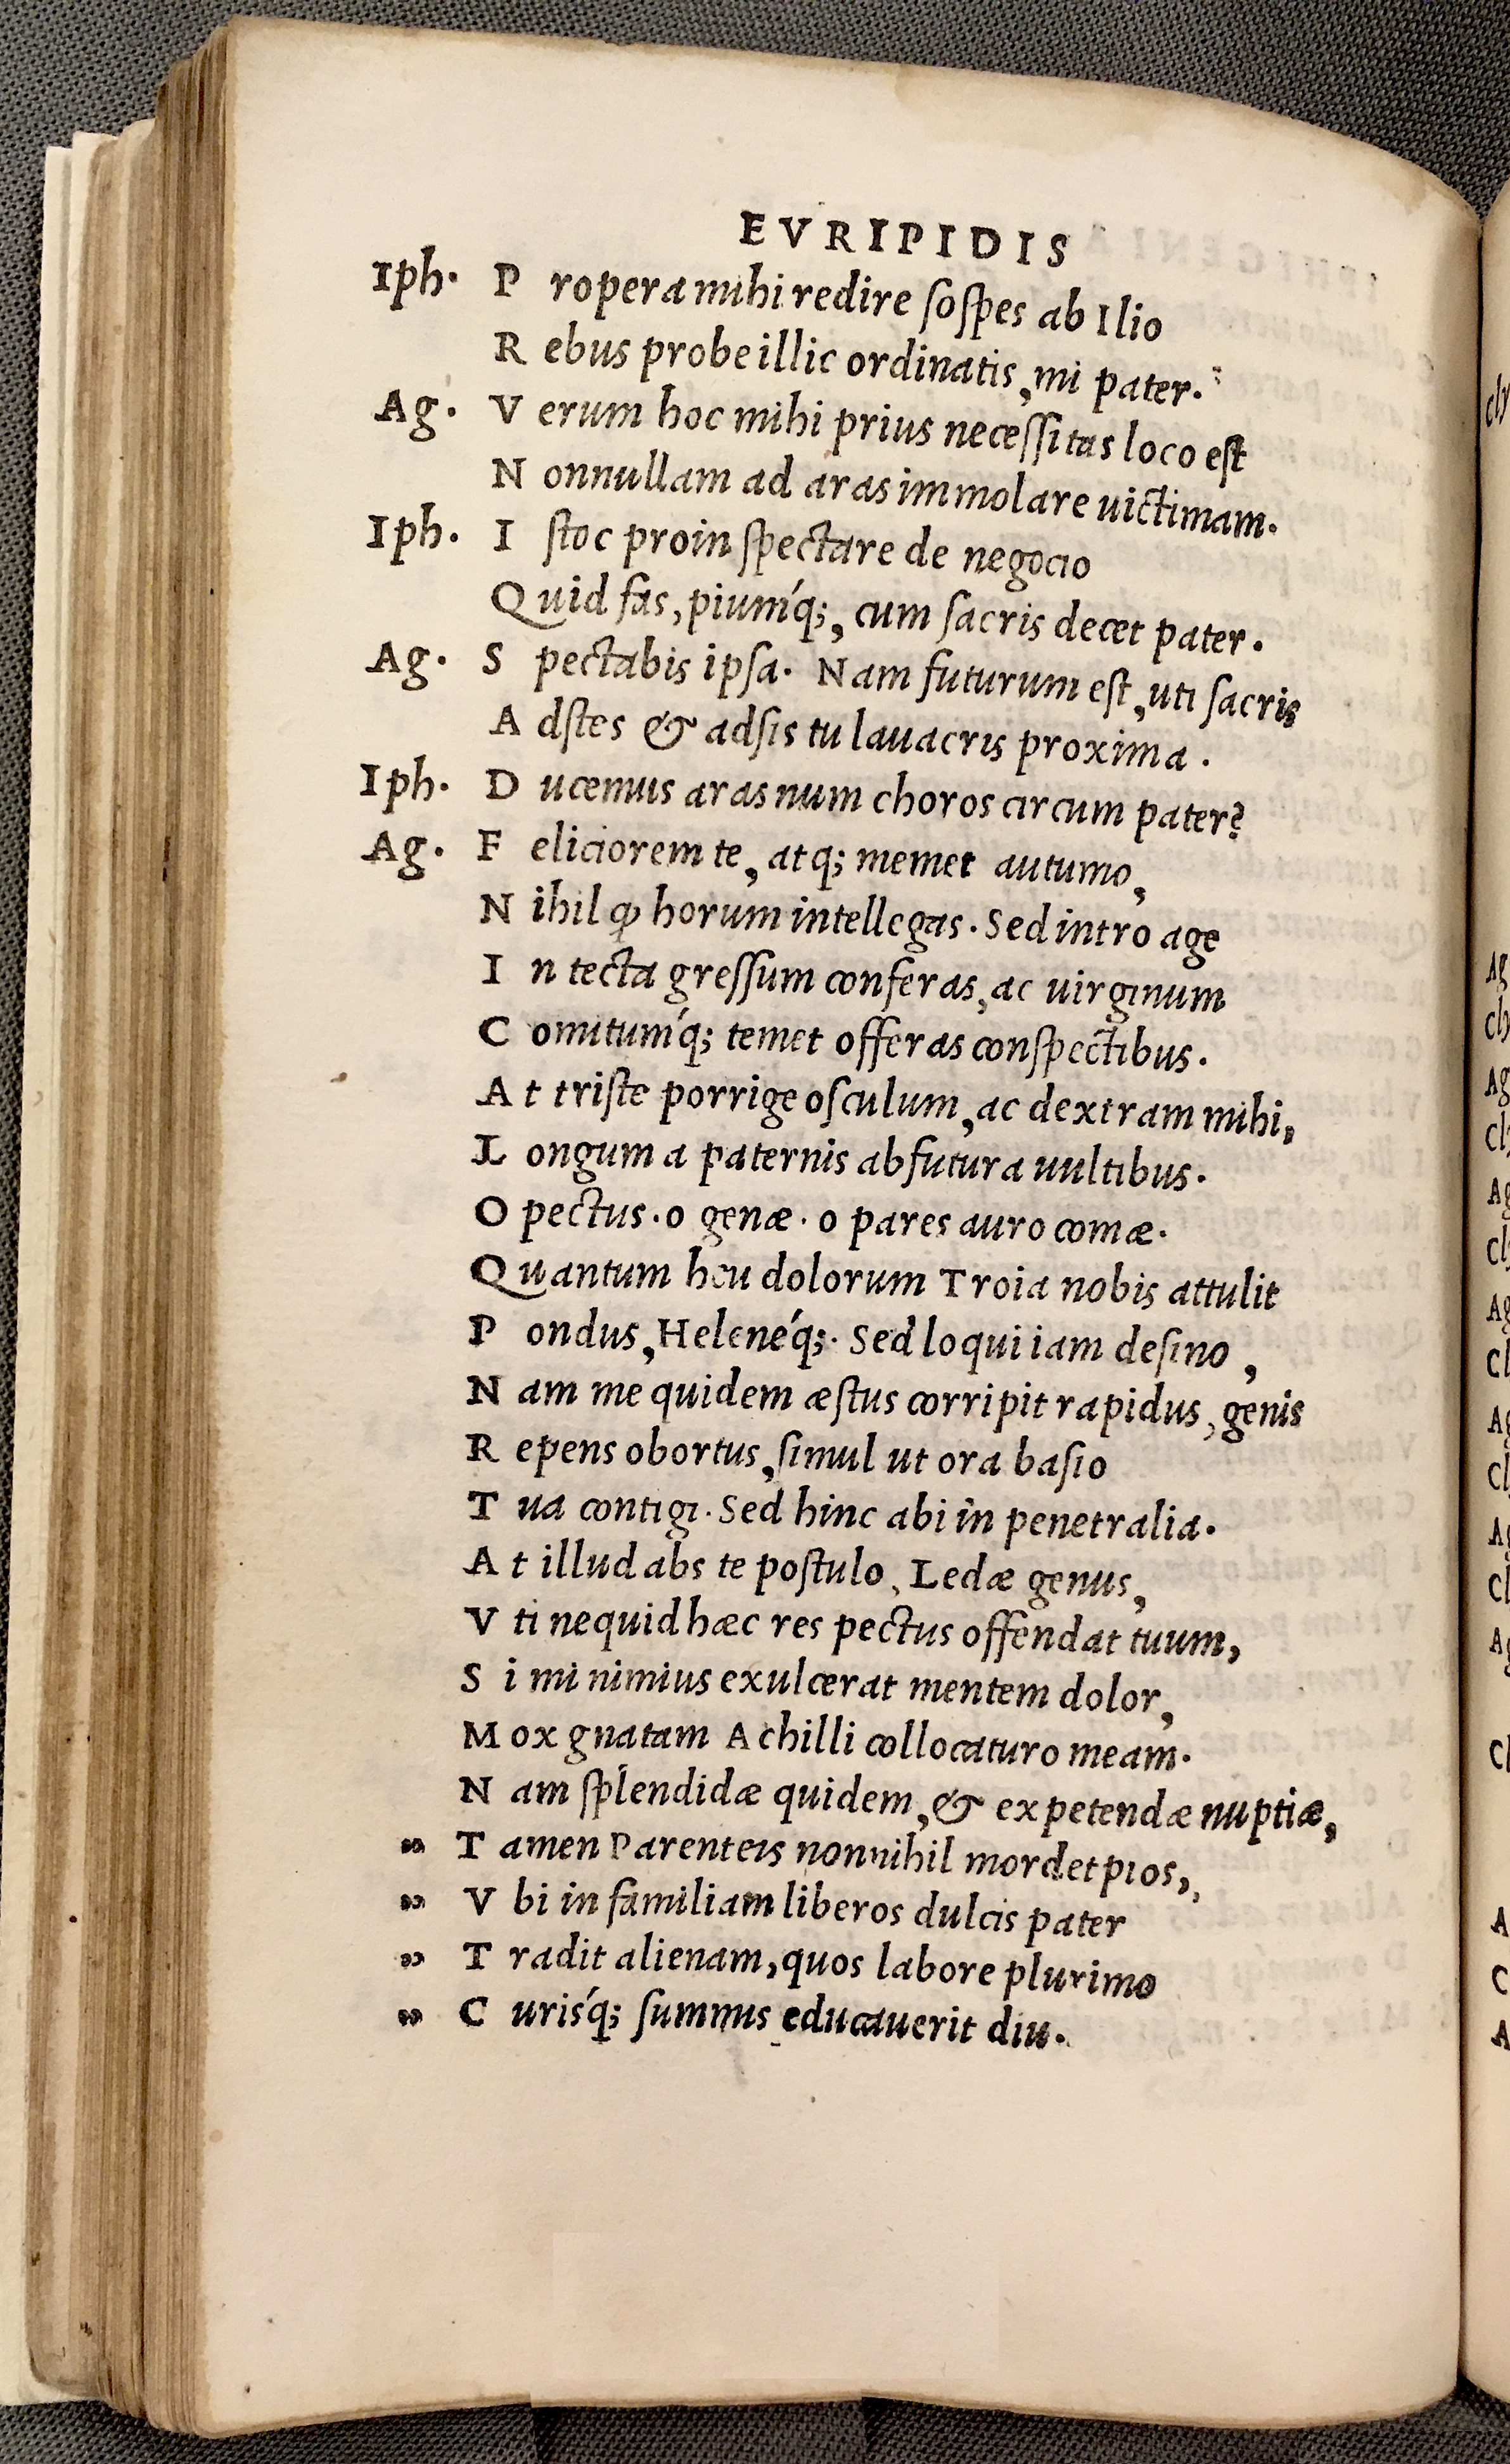 EVRIPIDIS
Iph. P ropera mihi redire soſpes ab Ilio
R ebus probe illic ordinatis, mi pater.
Ag. V erum hoc mihi prius neceſſitas loco eſt
N onnullam ad aras immolare uictimam.
Iph. I ſtoc proin ſpectare de negocio
Q uid fas, piumq́;, cum ſacris decet pater.
Ag. S pectabis ipſa. Nam futurum eſt, uti ſacris
A dſtes & adſis tu lauacris proxima.
Iph. D ucemus aras num choros circum pater?
Ag. F eliciorem te, atq; memet autumo,
N ihil ꝙ horum intellegas. Sed intro age
I n tecta greſſum conferas, ac uirginum
C omitumq́; temet offeras conſpectibus.
A t triſte porrige oſculum, ac dextram mihi,
L ongum a paternis abfutura uultibus.
O pectus. o genæ. o pares auro comæ.
Q uantum heu dolorum Troia nobis attulit
P ondus, Heleneq́;. Sed loqui iam deſino,
N am me quidem æſtus corripit rapidus, genis
R epens obortus, ſimul ut ora baſio
T ua contigi. Sed hinc abi in penetralia.
A t illud abs te poſtulo, Ledæ genus,
V ti nequid hæc res pectus offendat tuum,
S i mi nimius exulcerat mentem dolor,
M ox gnatam Achilli collocaturo meam.
N am ſplendidæ quidem, & expetendæ nuptiæ,
„ T amen Parenteis nonnihil mordet pios,
„ V bi in familiam liberos dulcis pater
„ T radit alienam, quos labore plurimo
„ C urisq́; ſummis educauerit diu.